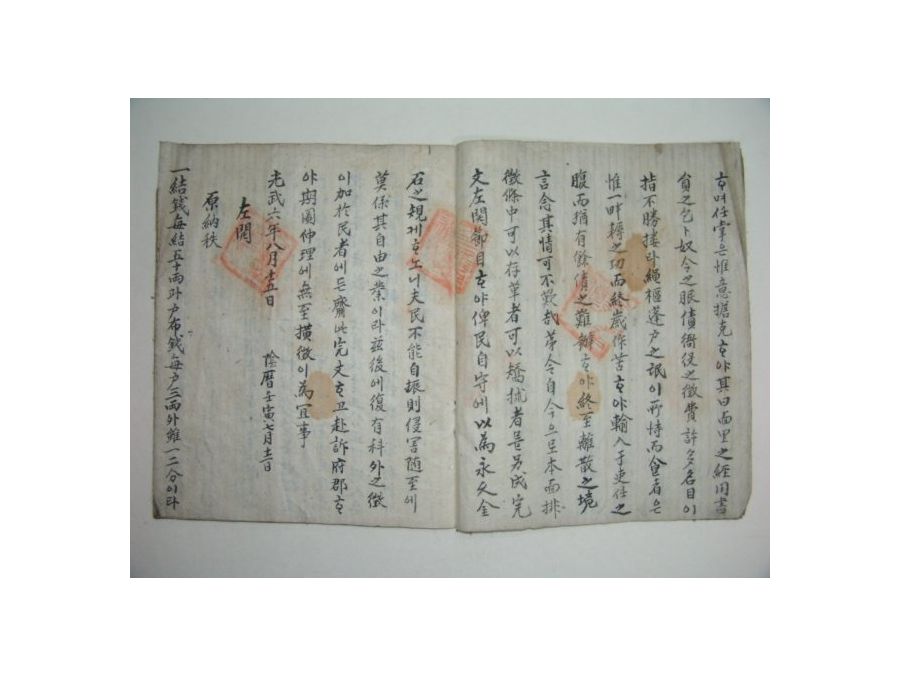 ᄒᆞ며任掌은惟意掊克ᄒᆞ야其曰面里之經用書
貟之乞卜奴令之脹債衙役之徵費許多名目이
指不勝摟라繩樞蓬户之氓이所恃而食者은
惟一畔耨之功而終歲作苦ᄒᆞ야輸入于吏任之
腹而猶有餘債之難辦ᄒᆞ야終至離散之境
言念其情可不歎哉第令自今으로本面排
徵條中可以存革者可以矯捄者를另成完
文左開節目ᄒᆞ야俾民自守에以爲永久金
石之規게ᄒᆞ노니夫民不能自振則侵害随至에
莫係其自由之業이라玆後에復有科外之徵
이加於民者에든齎此完文ᄒᆞ고赴訴府郡ᄒᆞ
야期圖伸理에無至橫徵이爲宜事
光武六年八月十五日
陰曆壬寅七月十二日
左開
原納秩
一結錢每結五十兩과户布錢每户三兩外雖一二分이라